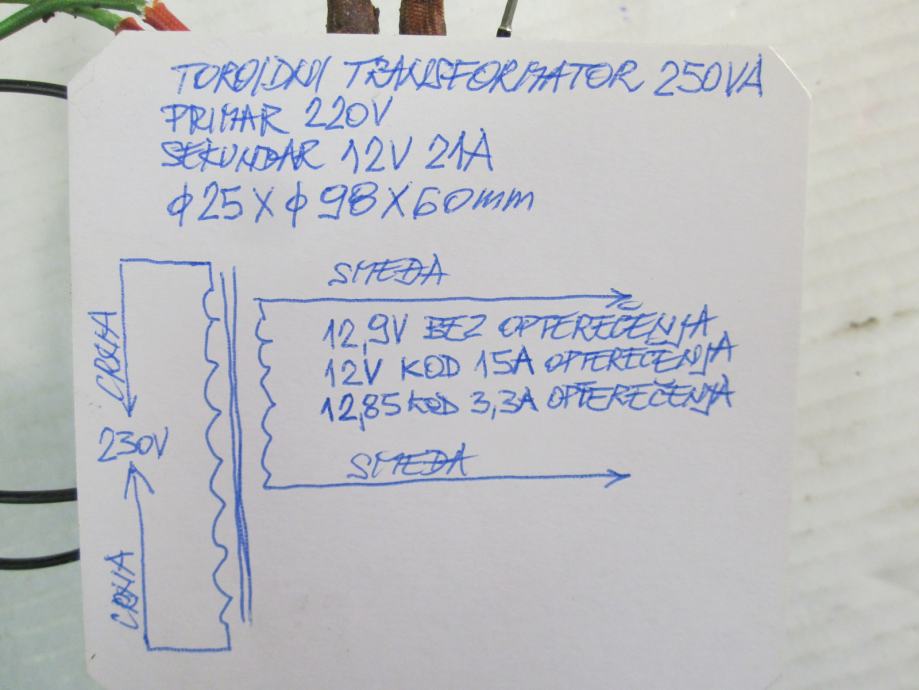 TOROIDNI TRANSFORMATOR 250VA
PRIMAR 220V
SEKUNDAR 12V 21A
ϕ25 X ϕ 98 X 60mm
SMEĐA
12,9V BEZ OPTEREČENJA
12V KOD 15A OPTEREČENJA
12,85 KOD 3,3A OPTEREČENJA
SMEĐA
CRNA
230V
CRNA